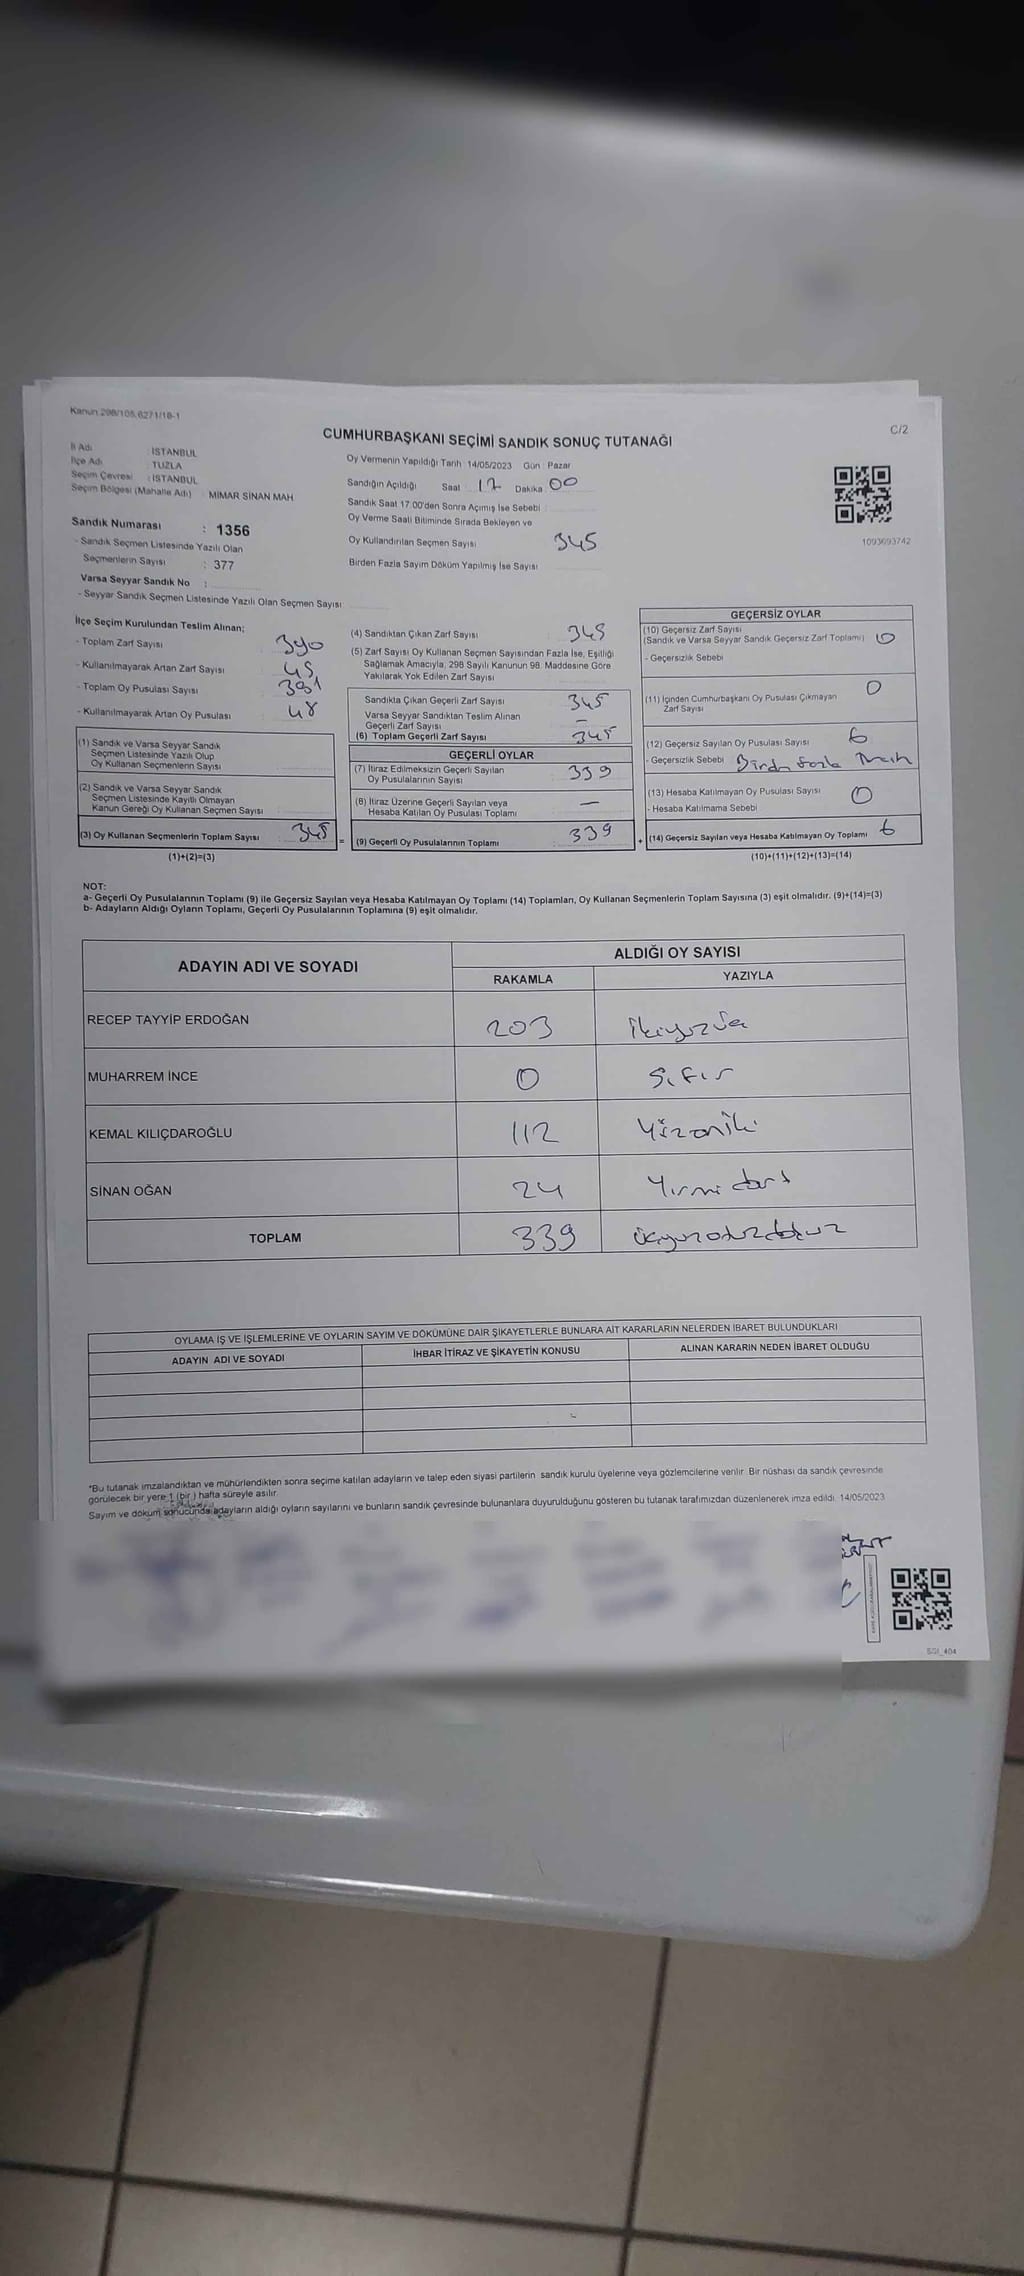 Kanun:298/105,6271/18-1
C/2
CUMHURBAŞKANI SEÇİMİ SANDIK SONUÇ TUTANAĞI
İl Adı : İSTANBUL
İlçe Adı : TUZLA
Seçim Çevresi : İSTANBUL
Seçim Bölgesi (Mahalle Adı) : MİMAR SİNAN MAH
Sandık Numarası : 1356
- Sandık Seçmen Listesinde Yazılı Olan
Seçmenlerin Sayısı : 377
Varsa Seyyar Sandık No :
- Seyyar Sandık Seçmen Listesinde Yazılı Olan Seçmen Sayısı
Oy Vermenin Yapıldığı Tarih : 14/05/2023 Gün : Pazar
Sandığın Açıldığı Saat 17 Dakika 00
Sandık Saat 17:00'den Sonra Açımış İse Sebebi :
Oy Verme Saati Bitiminde Sırada Bekleyen ve
Oy Kullandırılan Seçmen Sayısı 345
Birden Fazla Sayım Döküm Yapılmış İse Sayısı
1093693742
İlçe Seçim Kurulundan Teslim Alınan;
- Toplam Zarf Sayısı 390
- Kullanılmayarak Artan Zarf Sayısı 45
- Toplam Oy Pusulası Sayısı
- Kullanılmayarak Artan Oy Pusulası 48
(1) Sandık ve Varsa Seyyar Sandık
Seçmen Listesinde Yazılı Olup
Oy Kullanan Seçmenlerin Sayısı
(2) Sandık ve Varsa Seyyar Sandık
Seçmen Listesinde Kayıtlı Olmayan
Kanun Gereği Oy Kullanan Seçmen Sayısı
(3) Oy Kullanan Seçmenlerin Toplam Sayısı 345
(1)+(2)=(3)
(4) Sandıktan Çıkan Zarf Sayısı 345
(5) Zarf Sayısı Oy Kullanan Seçmen Sayısından Fazla İse, Eşitliği
Sağlamak Amacıyla, 298 Sayılı Kanunun 98. Maddesine Göre
Yakılarak Yok Edilen Zarf Sayısı
Sandıkta Çıkan Geçerli Zarf Sayısı 345
Varsa Seyyar Sandıktan Teslim Alınan
Geçerli Zarf Sayısı –
(6) Toplam Geçerli Zarf Sayısı 345
GEÇERLİ OYLAR
(7) İtiraz Edilmeksizin Geçerli Sayılan
Oy Pusulalarının Sayısı 339
(8) İtiraz Üzerine Geçerli Sayılan veya
Hesaba Katılan Oy Pusulası Toplamı –
=
(9) Geçerli Oy Pusulalarının Toplamı 339
GEÇERSİZ OYLAR
(10) Geçersiz Zarf Sayısı
(Sandık ve Varsa Seyyar Sandık Geçersiz Zarf Toplamı) 0
- Geçersizlik Sebebi
(11) İçinden Cumhurbaşkanı Oy Pusulası Çıkmayan
Zarf Sayısı 0
(12) Geçersiz Sayılan Oy Pusulası Sayısı 6
- Geçersizlik Sebebi Birden fazla
(13) Hesaba Katılmayan Oy Pusulası Sayısı 0
- Hesaba Katılmama Sebebi
+
(14) Geçersiz Sayılan veya Hesaba Katılmayan Oy Toplamı 6
(10)+(11)+(12)+(13)=(14)
NOT:
a- Geçerli Oy Pusulalarının Toplamı (9) ile Geçersiz Sayılan veya Hesaba Katılmayan Oy Toplamı (14) Toplamları, Oy Kullanan Seçmenlerin Toplam Sayısına (3) eşit olmalıdır. (9)+(14)=(3)
b- Adayların Aldığı Oyların Toplamı, Geçerli Oy Pusulalarının Toplamına (9) eşit olmalıdır.
ADAYIN ADI VE SOYADI
ALDIĞI OY SAYISI
RAKAMLA YAZIYLA
RECEP TAYYİP ERDOĞAN 203 ikiyüzüç
MUHARREM İNCE 0 Sıfır
KEMAL KILIÇDAROĞLU 112 Yüzoniki
SİNAN OĞAN 24 Yirmi dört
TOPLAM 339 üçyüzotuzdokuz
OYLAMA İŞ VE İŞLEMLERİNE VE OYLARIN SAYIM VE DÖKÜMÜNE DAİR ŞİKAYETLERLE BUNLARA AİT KARARLARIN NELERDEN İBARET BULUNDUKLARI
ADAYIN ADI VE SOYADI İHBAR İTİRAZ VE ŞİKAYETİN KONUSU ALINAN KARARIN NEDEN İBARET OLDUĞU
*Bu tutanak imzalandıktan ve mühürlendikten sonra seçime katılan adayların ve talep eden siyasi partilerin sandık kurulu üyelerine veya gözlemcilerine verilir. Bir nüshası da sandık çevresinde
görülecek bir yere 1 (bir ) hafta süreyle asılır.
Sayım ve döküm sonucunda adayların aldığı oyların sayılarını ve bunların sandık çevresinde bulunanlara duyurulduğunu gösteren bu tutanak tarafımızdan düzenlenerek imza edildi. 14/05/2023